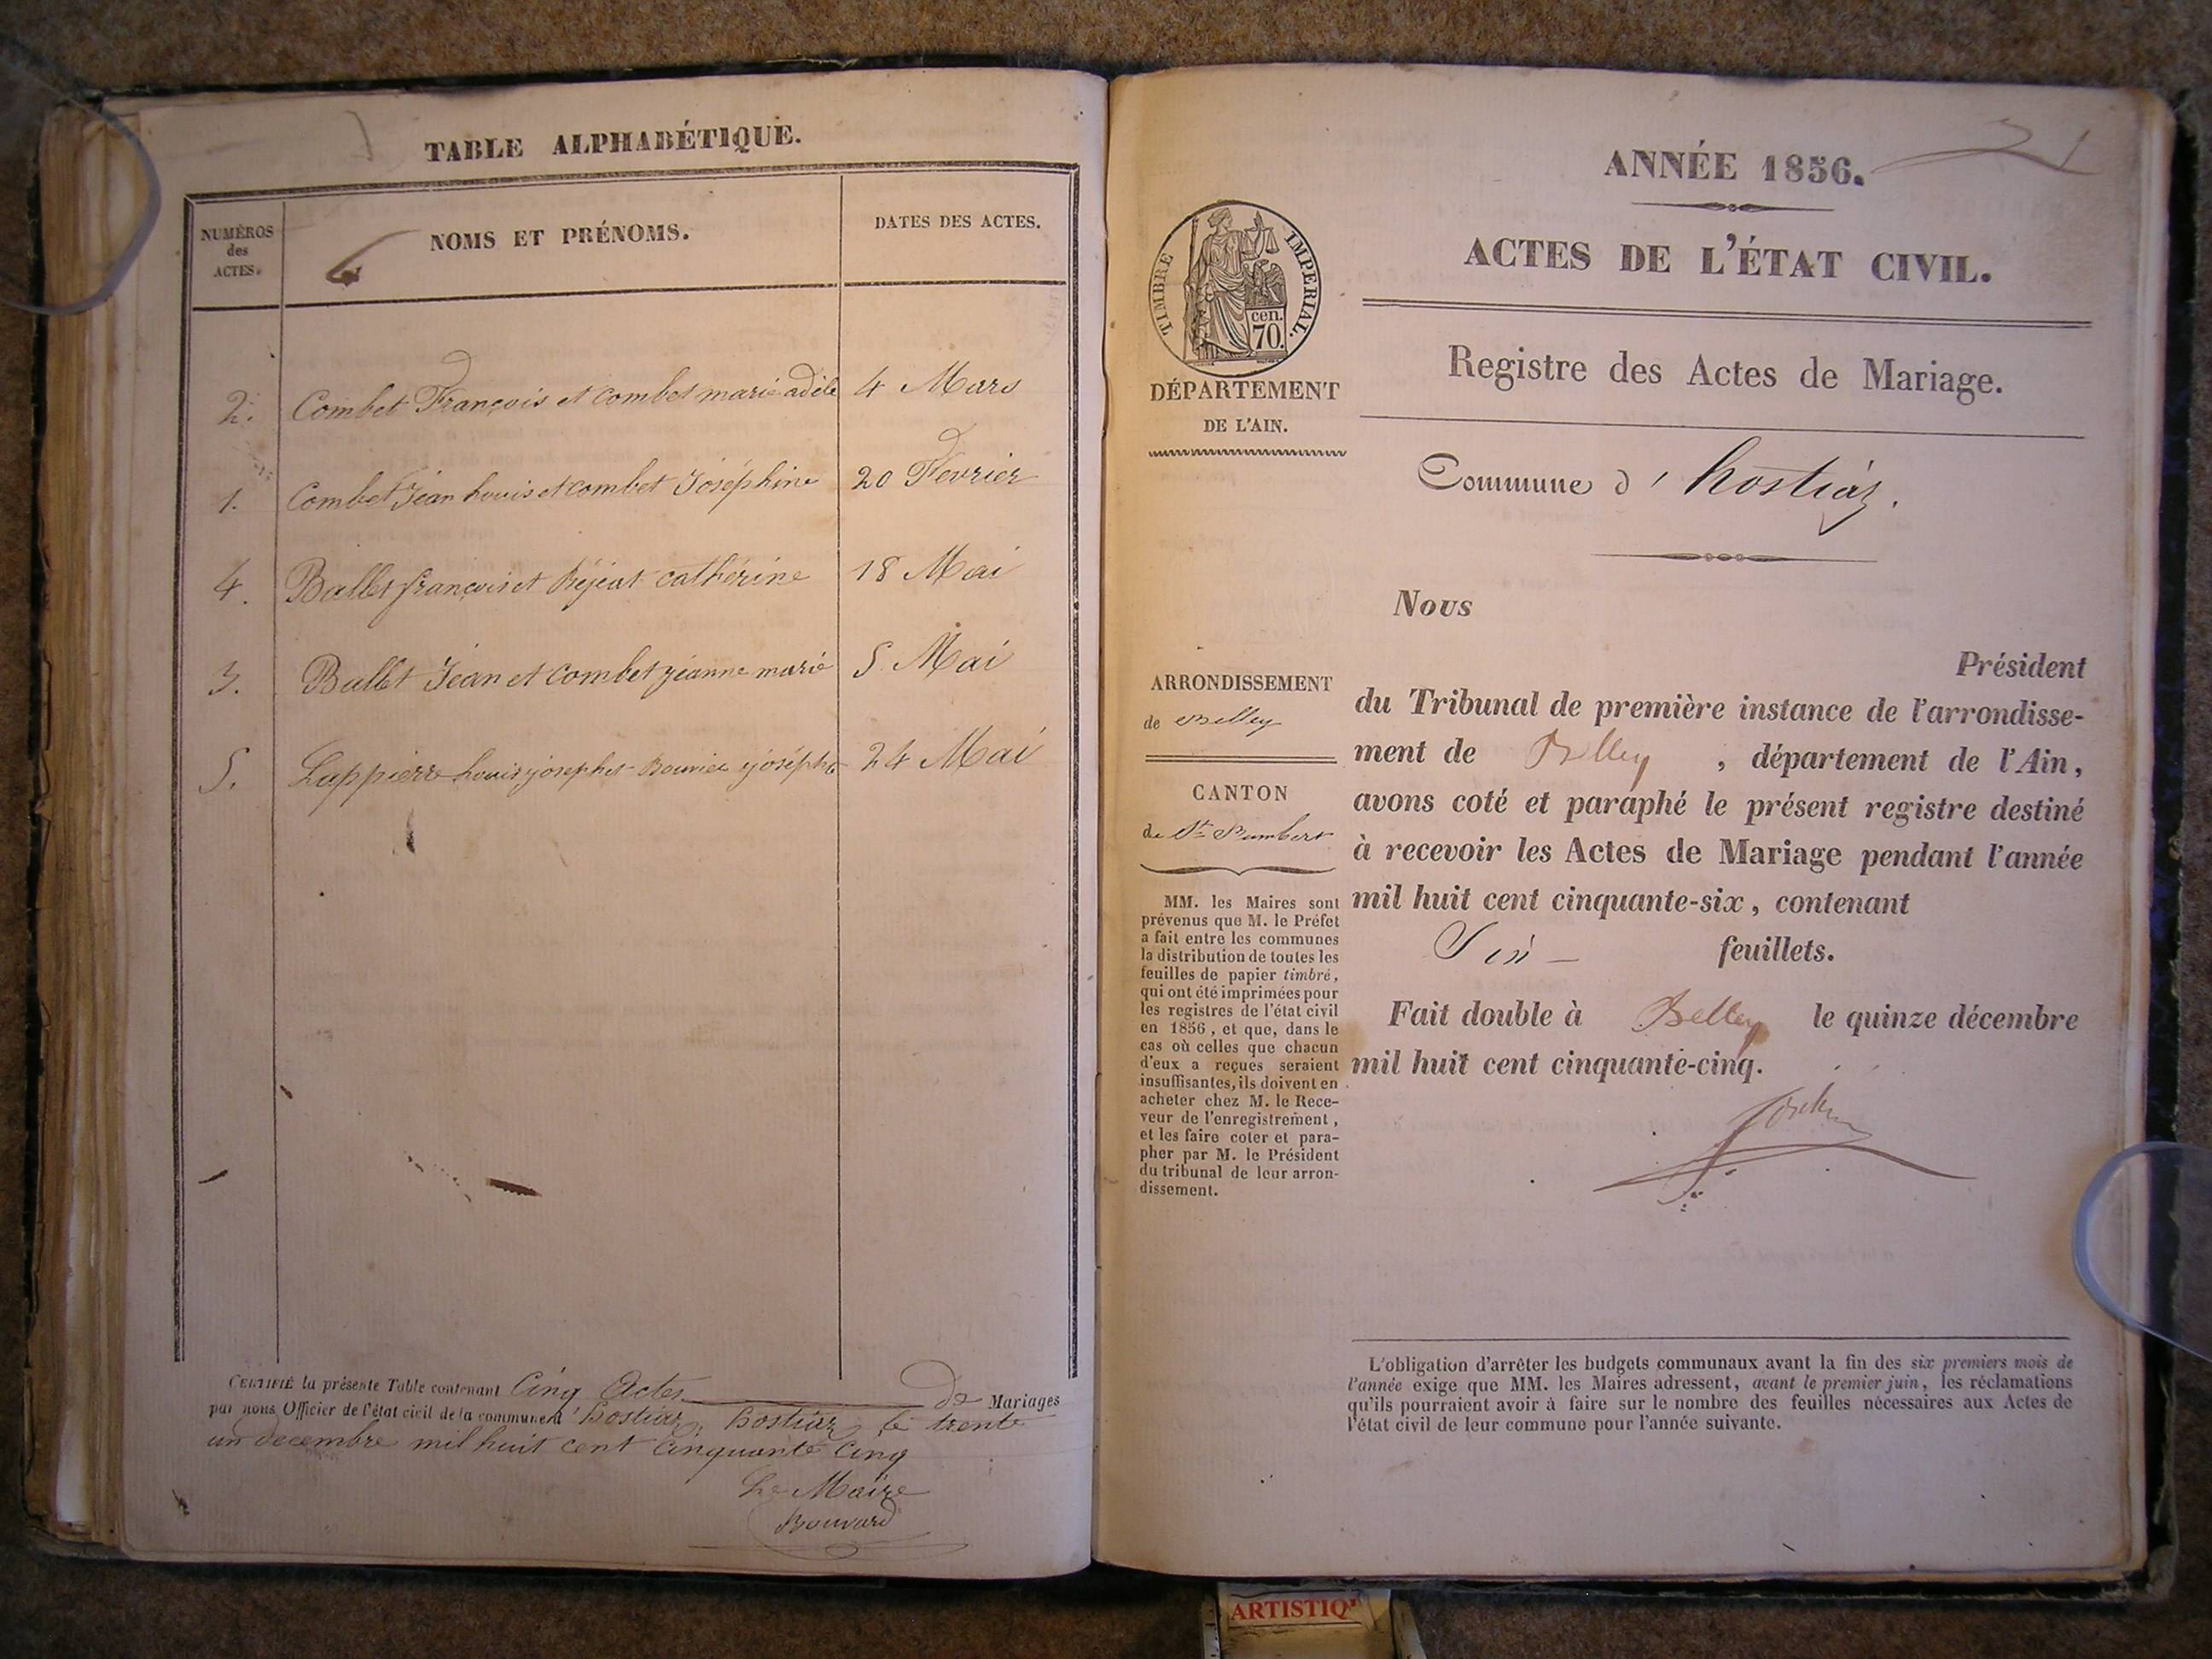 TABLE ALPHABÉTIQUE.
NUMÉROS
des
ACTES.
NOMS ET PRÉNOMS.
DATES DES ACTES.
2. Combet François et combet marie adèle 4 Mars
1. Combet Jéan Louis et combet Joséphine 20 Fevrier
4. Ballet françois et Réjeat cathérine 18 Mai
3. Ballet Jéan et Combet jéanne marie 5 Mai
5. Lappierre Louis joseph et Bouvier joséphte 24 Mai
CERTIFIÉ la présente Table contenant Cinq Actes de Mariages
par nous Officier de l'état civil de la commune d'hostiaz, hostiaz le trente
un decembre mil huit cent cinquante cinq
Le Maire
Bouvard
ANNÉE 1856.
ACTES DE L'ÉTAT CIVIL.
TIMBRE IMPERIAL.
cen.
70.
DÉPARTEMENT
DE L'AIN.
Registre des Actes de Mariage.
Commune d'hostiaz.
ARRONDISSEMENT
de Belley
CANTON
de St Rambert
MM. les Maires sont
prévenus que M. le Préfet
a fait entre les communes
la distribution de toutes les
feuilles de papier timbré,
qui ont été imprimées pour
les registres de l'état civil
en 1856, et que, dans le
cas où celles que chacun
d'eux a reçues seraient
insuffisantes, ils doivent en
acheter chez M. le Rece-
veur de l'enregistrement,
et les faire coter et para-
pher par M. le Président
du tribunal de leur arron-
dissement.
Nous
Président
du Tribunal de première instance de l'arrondisse-
ment de Belley, département de l'Ain,
avons coté et paraphé le présent registre destiné
à recevoir les Actes de Mariage pendant l'année
mil huit cent cinquante-six, contenant
Six feuillets.
Fait double à Belley le quinze décembre
mil huit cent cinquante-cinq.
L'obligation d'arrêter les budgets communaux avant la fin des six premiers mois de
l'année exige que MM. les Maires adressent, avant le premier juin, les réclamations
qu'ils pourraient avoir à faire sur le nombre des feuilles nécessaires aux Actes de
l'état civil de leur commune pour l'année suivante.
ARTISTIQ